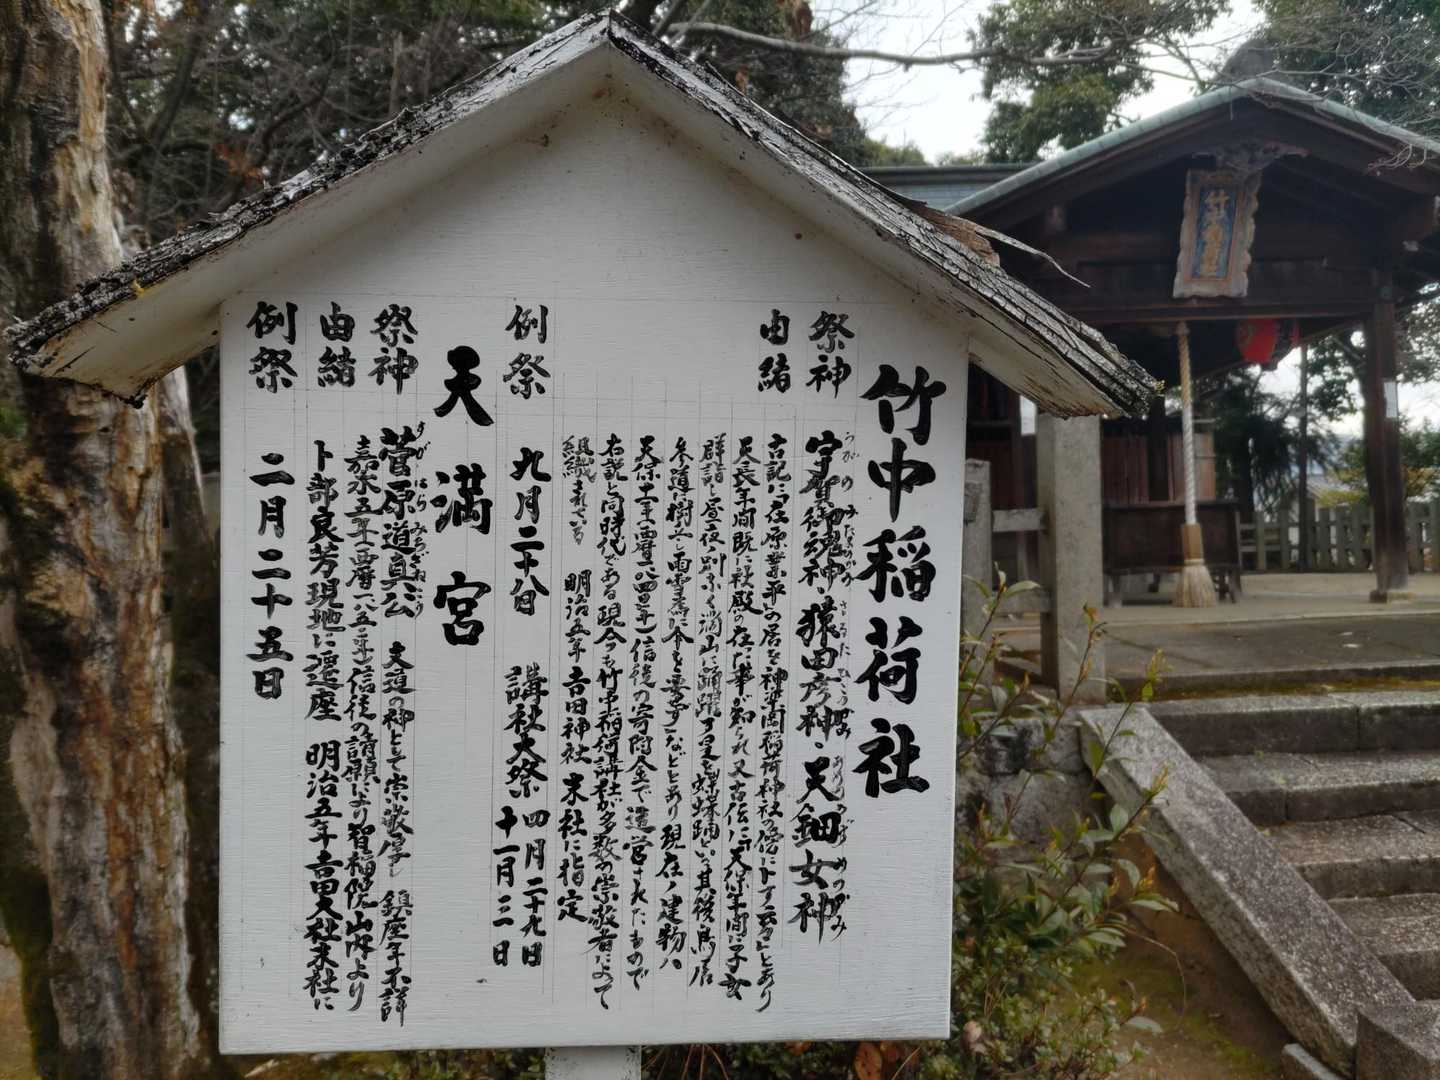 竹中稲荷社
祭神 宇賀御魂神・猿田彦神・天鈿女神
うがのみたまのかみ さるたひこのかみ あめのうずめのかみ
由緒 古記に「在原業平の居を神楽岡稲荷神社の傍に卜す云写」とあり
天長年間既に社殿の在った事が知られ又古伝に「天保年間に子女
群詣し昼夜ノ別なく満山に踊躍す是を蝶蝶踊といふ其後鳥居
参道に樹立し雨雪為に傘を要せず」などとあり現在ノ建物ハ
天保十一年(西暦一八四〇年)信徒の寄附金で造営されたもので
右説と同時代である現今も竹中稲荷講社が多数の崇敬者によって
組織されている 明治五年吉田神社末社に指定
例祭 九月二十八日 講社大祭 四月二十九日
十一月三日
天満宮
祭神 菅原道真公 文道の神として崇敬厚し 鎮座年不詳
すがはらみちざねこう
由緒 嘉永五年(西暦一八五二年)信徒の請願により智福院山内より
卜部良芳現地に遷座 明治五年吉田大社末社に
例祭 二月二十五日
竹中稲荷社